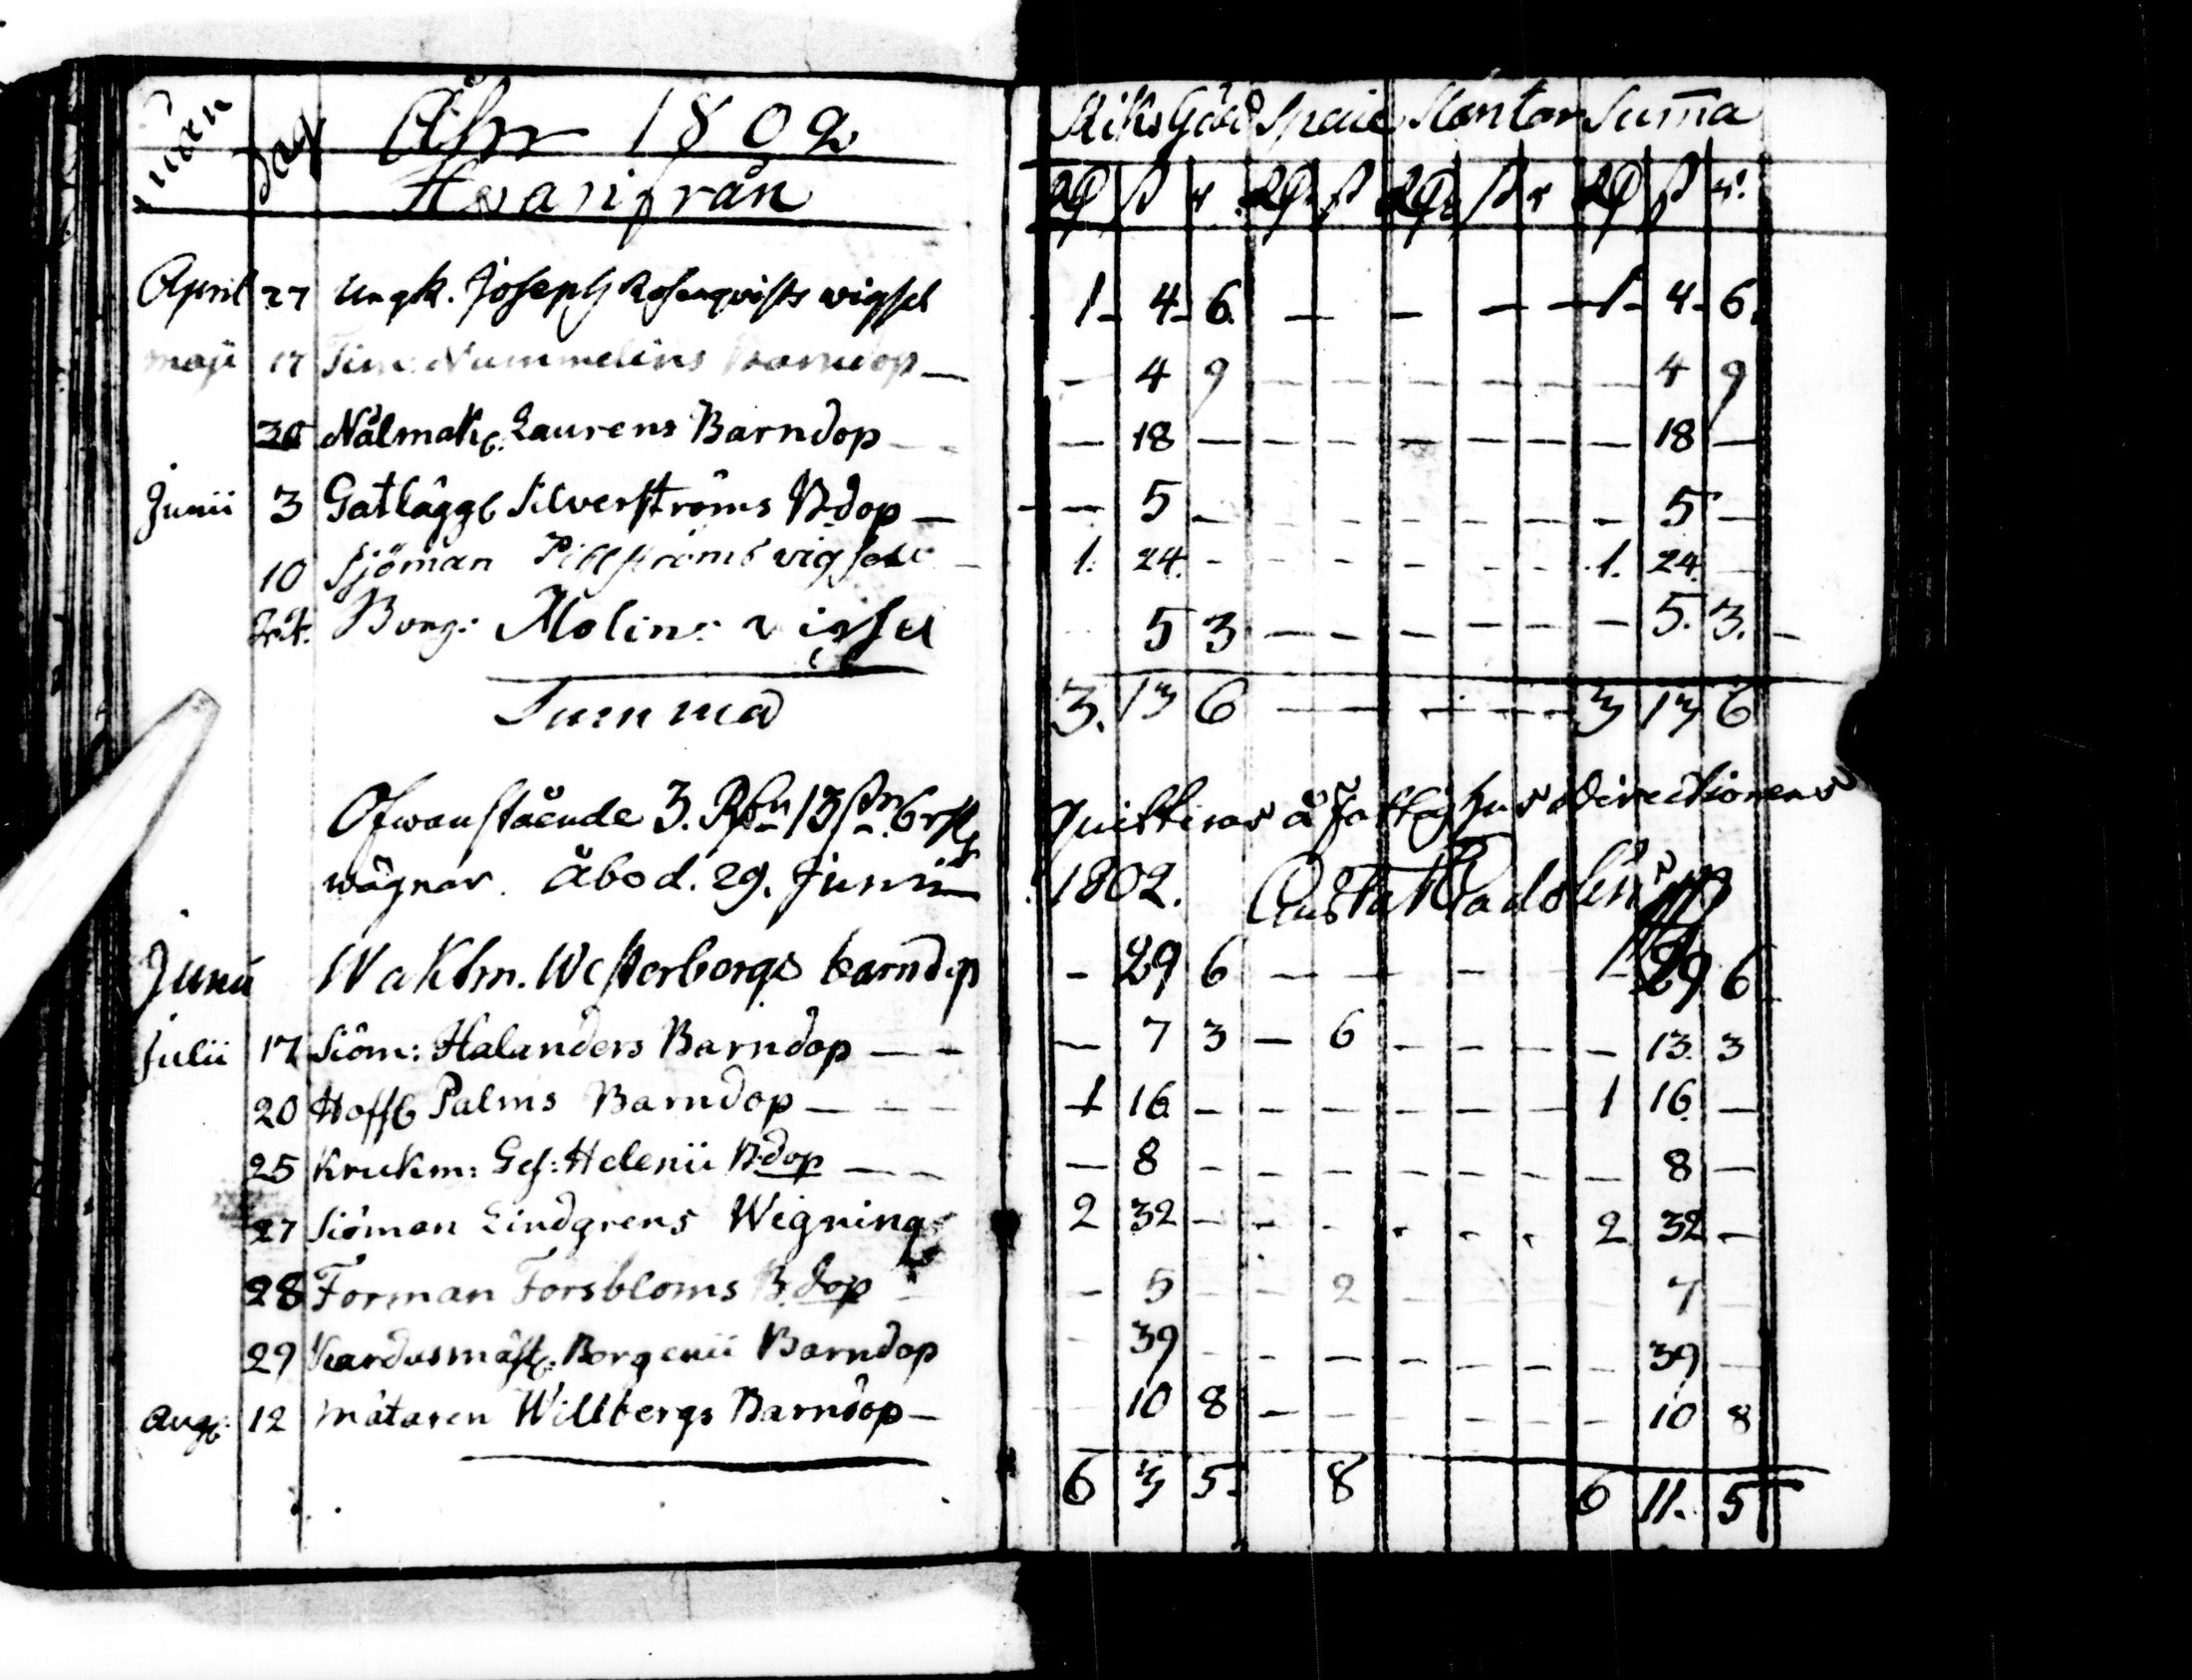 mån Dag Åhr 1802 RiksGäld Specie Slantar Suma
Hvarifrån Rd ß r. Rd ß Rd ß r Rd ß r.
April 27 Ungk. Joseph Rosenqvists wigsel 1. 4. 6. — — — — 1. 4. 6.
maji 17 Tim: Nummelins Barndop — — 4 9 — — — — — — 4 9
30 Nålmak. Laurens Barndop — — — 18 — — — — — — — 18 —
Junii 3 Gatlägg Silverströms B.dop — — 5 — — — — — — — 5 —
10 Sjöman vigsel — 1. 24. — — — — — — 1. 24. —
Borg: Molins vigsel 5 3 — — — — — — 5. 3. —
Summa 3. 13 6 — — — — — 3 13 6
Ofwanstående 3. Rd 13 ß 6 r quitteras å Fattighus Directionens
wägnar. Åbo d. 29. Junii 1802. Gustaf
Junii Waktm. Westerbergs barndop — 29 6 — — — 29 6
Julii 17 Siöm: Halanders Barndop — — — 7 3 — 6 — — — — 13. 3
20 Hoff Palms Barndop — — — 1 16 — — — — — — 1 16 —
25 Krukm: Ges: Helenii B.dop — — — 8 — — — — — — — 8 —
27 Siöman Lindgrens Wigning 2 32 — — — — — — 2 32 —
28 Forman Forsbloms B.dop — — 5 — — 2 — — — — 7 —
29 Kardusmäst. Borgenii Barndop — 39 — — — — — — — 39 —
Aug: 12 mätaren Willbergs Barndop — 10 8 — — — — — — 10 8
6 3 5. 8 6 11. 5